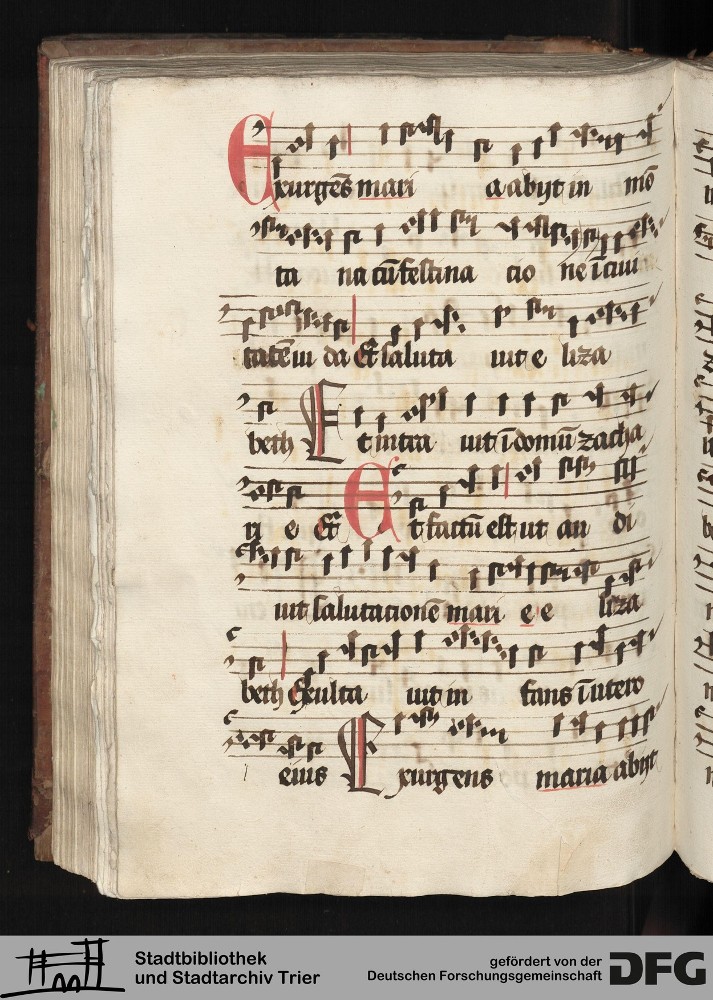 Exurgēs mari a abijt in mō
ta na cū festina cio ne ī ciui
tatē iu da Et saluta uit e liza
beth Et intra uit ī domū zacha
ri e Et Et factū est ut au di
uit salutationē mari e e liza
beth Exulta uit in fans ī utero
eius Exurgens maria abijt
Stadtbibliothek
und Stadtarchiv Trier
gefördert von der
Deutschen Forschungsgemeinschaft
DFG